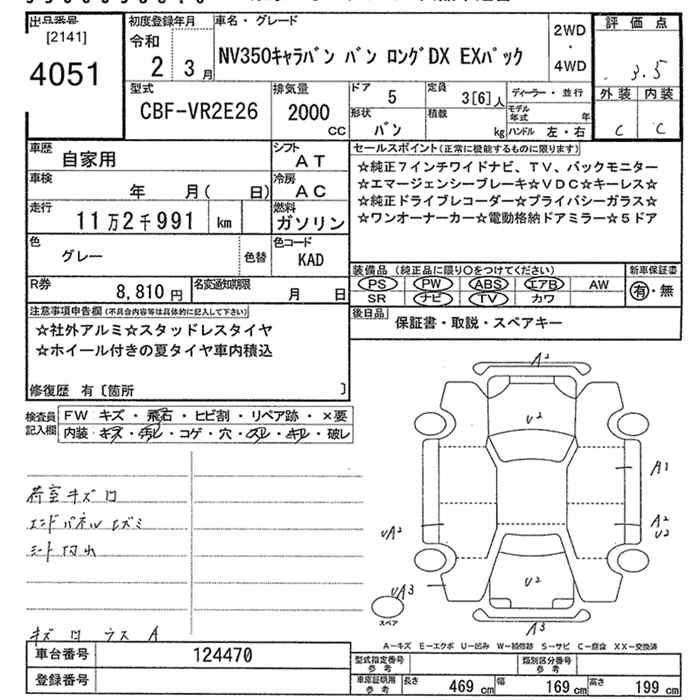 出品番号
[2141]
4051
初度登録年月
令和
2 3月
車名・グレード
NV350ｷｬﾗﾊﾞﾝ ﾊﾞﾝ ﾛﾝｸﾞDX EXﾊﾟｯｸ
2WD
・
4WD
評価点
3.5
外装 内装
C C
型式
CBF-VR2E26
排気量
2000
CC
ドア
5
定員
3[6]人
ディーラー・並行
形状
ﾊﾞﾝ
積載
kg
モデル年式 年
ハンドル 左・右
車歴
自家用
シフト
AT
車検
年 月( 日)
冷房
AC
走行
11万2千991 km
燃料
ガソリン
色
グレー
色替
色コード
KAD
R券
8,810円
名変通知期限
月 日
セールスポイント(正常に機能するものに限ります)
☆純正7インチワイドナビ、TV、バックモニター
☆エマージェンシーブレーキ☆VDC☆キーレス☆
☆純正ドライブレコーダー☆プライバシーガラス☆
☆ワンオーナーカー☆電動格納ドアミラー☆5ドア
装備品 (純正品に限り○をつけてください)
PS PW ABS エアB AW
SR ナビ TV カワ
新車保証書
有・無
後日品
保証書・取説・スペアキー
注意事項申告欄(不具合内容等は具体的に記入して下さい)
☆社外アルミ☆スタッドレスタイヤ
☆ホイール付きの夏タイヤ車内積込
修復歴 有〔箇所 〕
検査員
記入欄
FW キズ・飛石・ヒビ割・リペア跡・×要
内装・キズ・汚レ・コゲ・穴・スレ・キレ・破レ
荷室キズ凹
エンドパネルヒズミ
シート汚れ
キズ凹 ラス A
A2
U2
A1
A2
U2
UA2
U2
UA3
スペア
A3
A－キズ E－エクボ U－凹み W－補修跡 S－サビ C－腐食 XX－交換済
車台番号
124470
登録番号
型式指定番号
参考
類別区分番号
参考
車庫証明用
参考
長さ 469 cm
幅 169 cm
高さ 199 cm